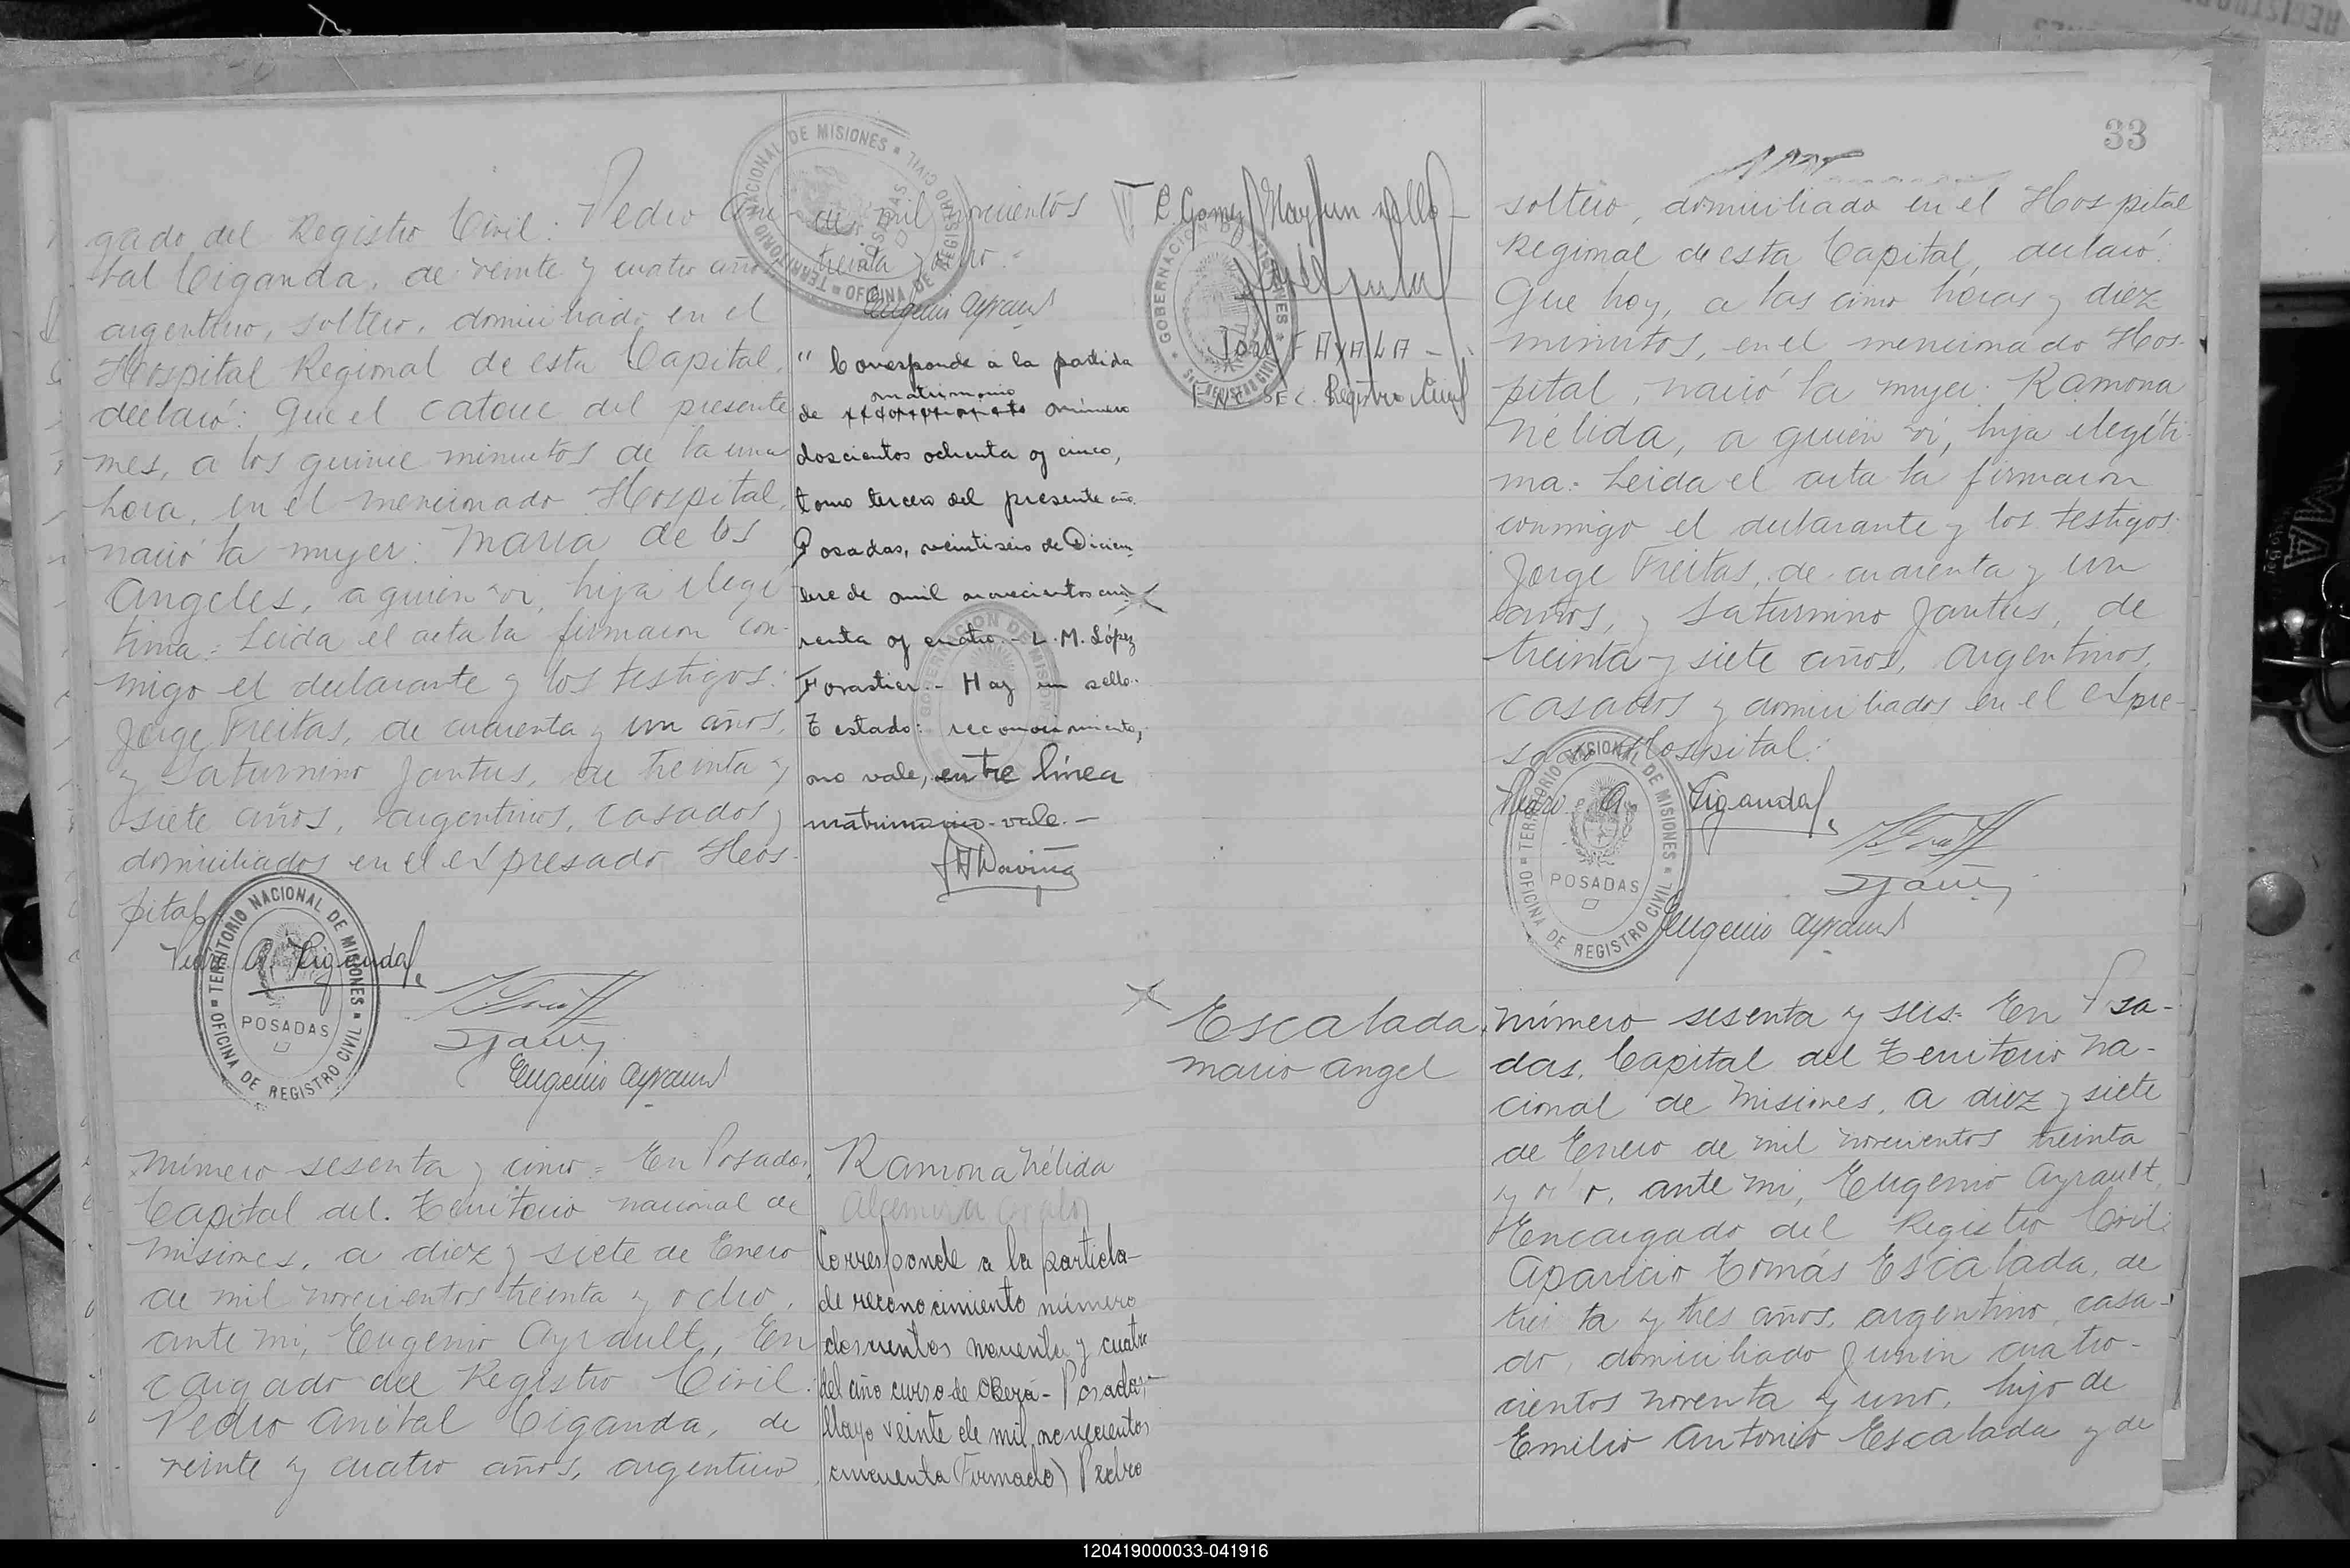 gado del Registro Civil: Pedro Aní-
tal Ciganda, de veinte y cuatro años
argentino, soltero, domiciliado en el
Hospital Regional de esta Capital,
declaró: Que el catorce del presente
mes, a los quince minutos de la una
hora, en el mencionado Hospital,
nació la mujer: Maria de los
Angeles, a quien vi, hija ilegí
tima: Leida el acta la firmaron con-
migo el declarante y los testigos:
Jorge Freitas, de cuarenta y un años,
y Saturnino Jantus, de treinta y
siete años, argentinos, casados y
domiciliados en el expresado Hos-
pital
Pedro A. Ciganda
Eugenio Ayrault
TERRITORIO NACIONAL DE MISIONES
POSADAS
OFICINA DE REGISTRO CIVIL
Número sesenta y cinco = En Posadas,
Capital del Territorio nacional de
Misiones, a diez y siete de Enero
de mil novecientos treinta y ocho,
ante mi, Eugenio Ayrault, En
cargado del Registro Civil:
Pedro Anital Ciganda, de
veinte y cuatro años, argentino
de mil novecientos
treinta y ocho.
Eugenio Ayrault
TERRITORIO NACIONAL DE MISIONES
OFICINA DE REGISTRO CIVIL
" Corresponde a la partida
matrimonio
de número
doscientos ochenta y cinco,
tomo tercero del presente año.
Posadas, veintiseis de Diciem
bre de mil novecientos cua
renta y cuatro.- L. M. López
Forastier.- Hay un sello.
Testado: reconocimiento,
no vale, entre línea
matrimonio-vale.-
GOBERNACION DE MISIONES
Ramona Nélida
Corresponde a la partida
de reconocimiento número
doscientos noventa y cuatro
del año curso de Oberá - Posadas,
Mayo veinte de mil novecientos
cincuenta (Firmado) Pedro
C. Gomez Hay un sello-
José F AYALA -
ENC. SEC. Registro Civil
GOBERNACION DE MISIONES
Escalada,
Mario Angel
33
soltero, domiciliado en el Hospital
Regional de esta Capital, declaró:
Que hoy, a las cinco horas y diez
minutos, en el mencionado Hos-
pital, nació la mujer: Ramona
Nélida, a quien vi, hija ilegíti-
ma: Leida el acta la firmaron
conmigo el declarante y los testigos:
Jorge Freitas, de cuarenta y un
años, y Saturnino Jantus, de
treinta y siete años, argentinos,
casados y domiciliados en el expre-
sado Hospital:
Pedro A. Ciganda
Eugenio Ayrault
TERRITORIO NACIONAL DE MISIONES
POSADAS
OFICINA DE REGISTRO CIVIL
Número sesenta y seis = En Posa-
das, Capital del Territorio Na-
cional de Misiones, a diez y siete
de Enero de mil novecientos treinta
y o o, ante mi, Eugenio Ayrault,
Encargado del Registro Civil:
Aparicio Tomás Escalada, de
trei ta y tres años, argentino, casa-
do, domiciliado Junin cuatro-
cientos noventa y uno, hijo de
Emilio Antonio Escalada y de
120419000033-041916